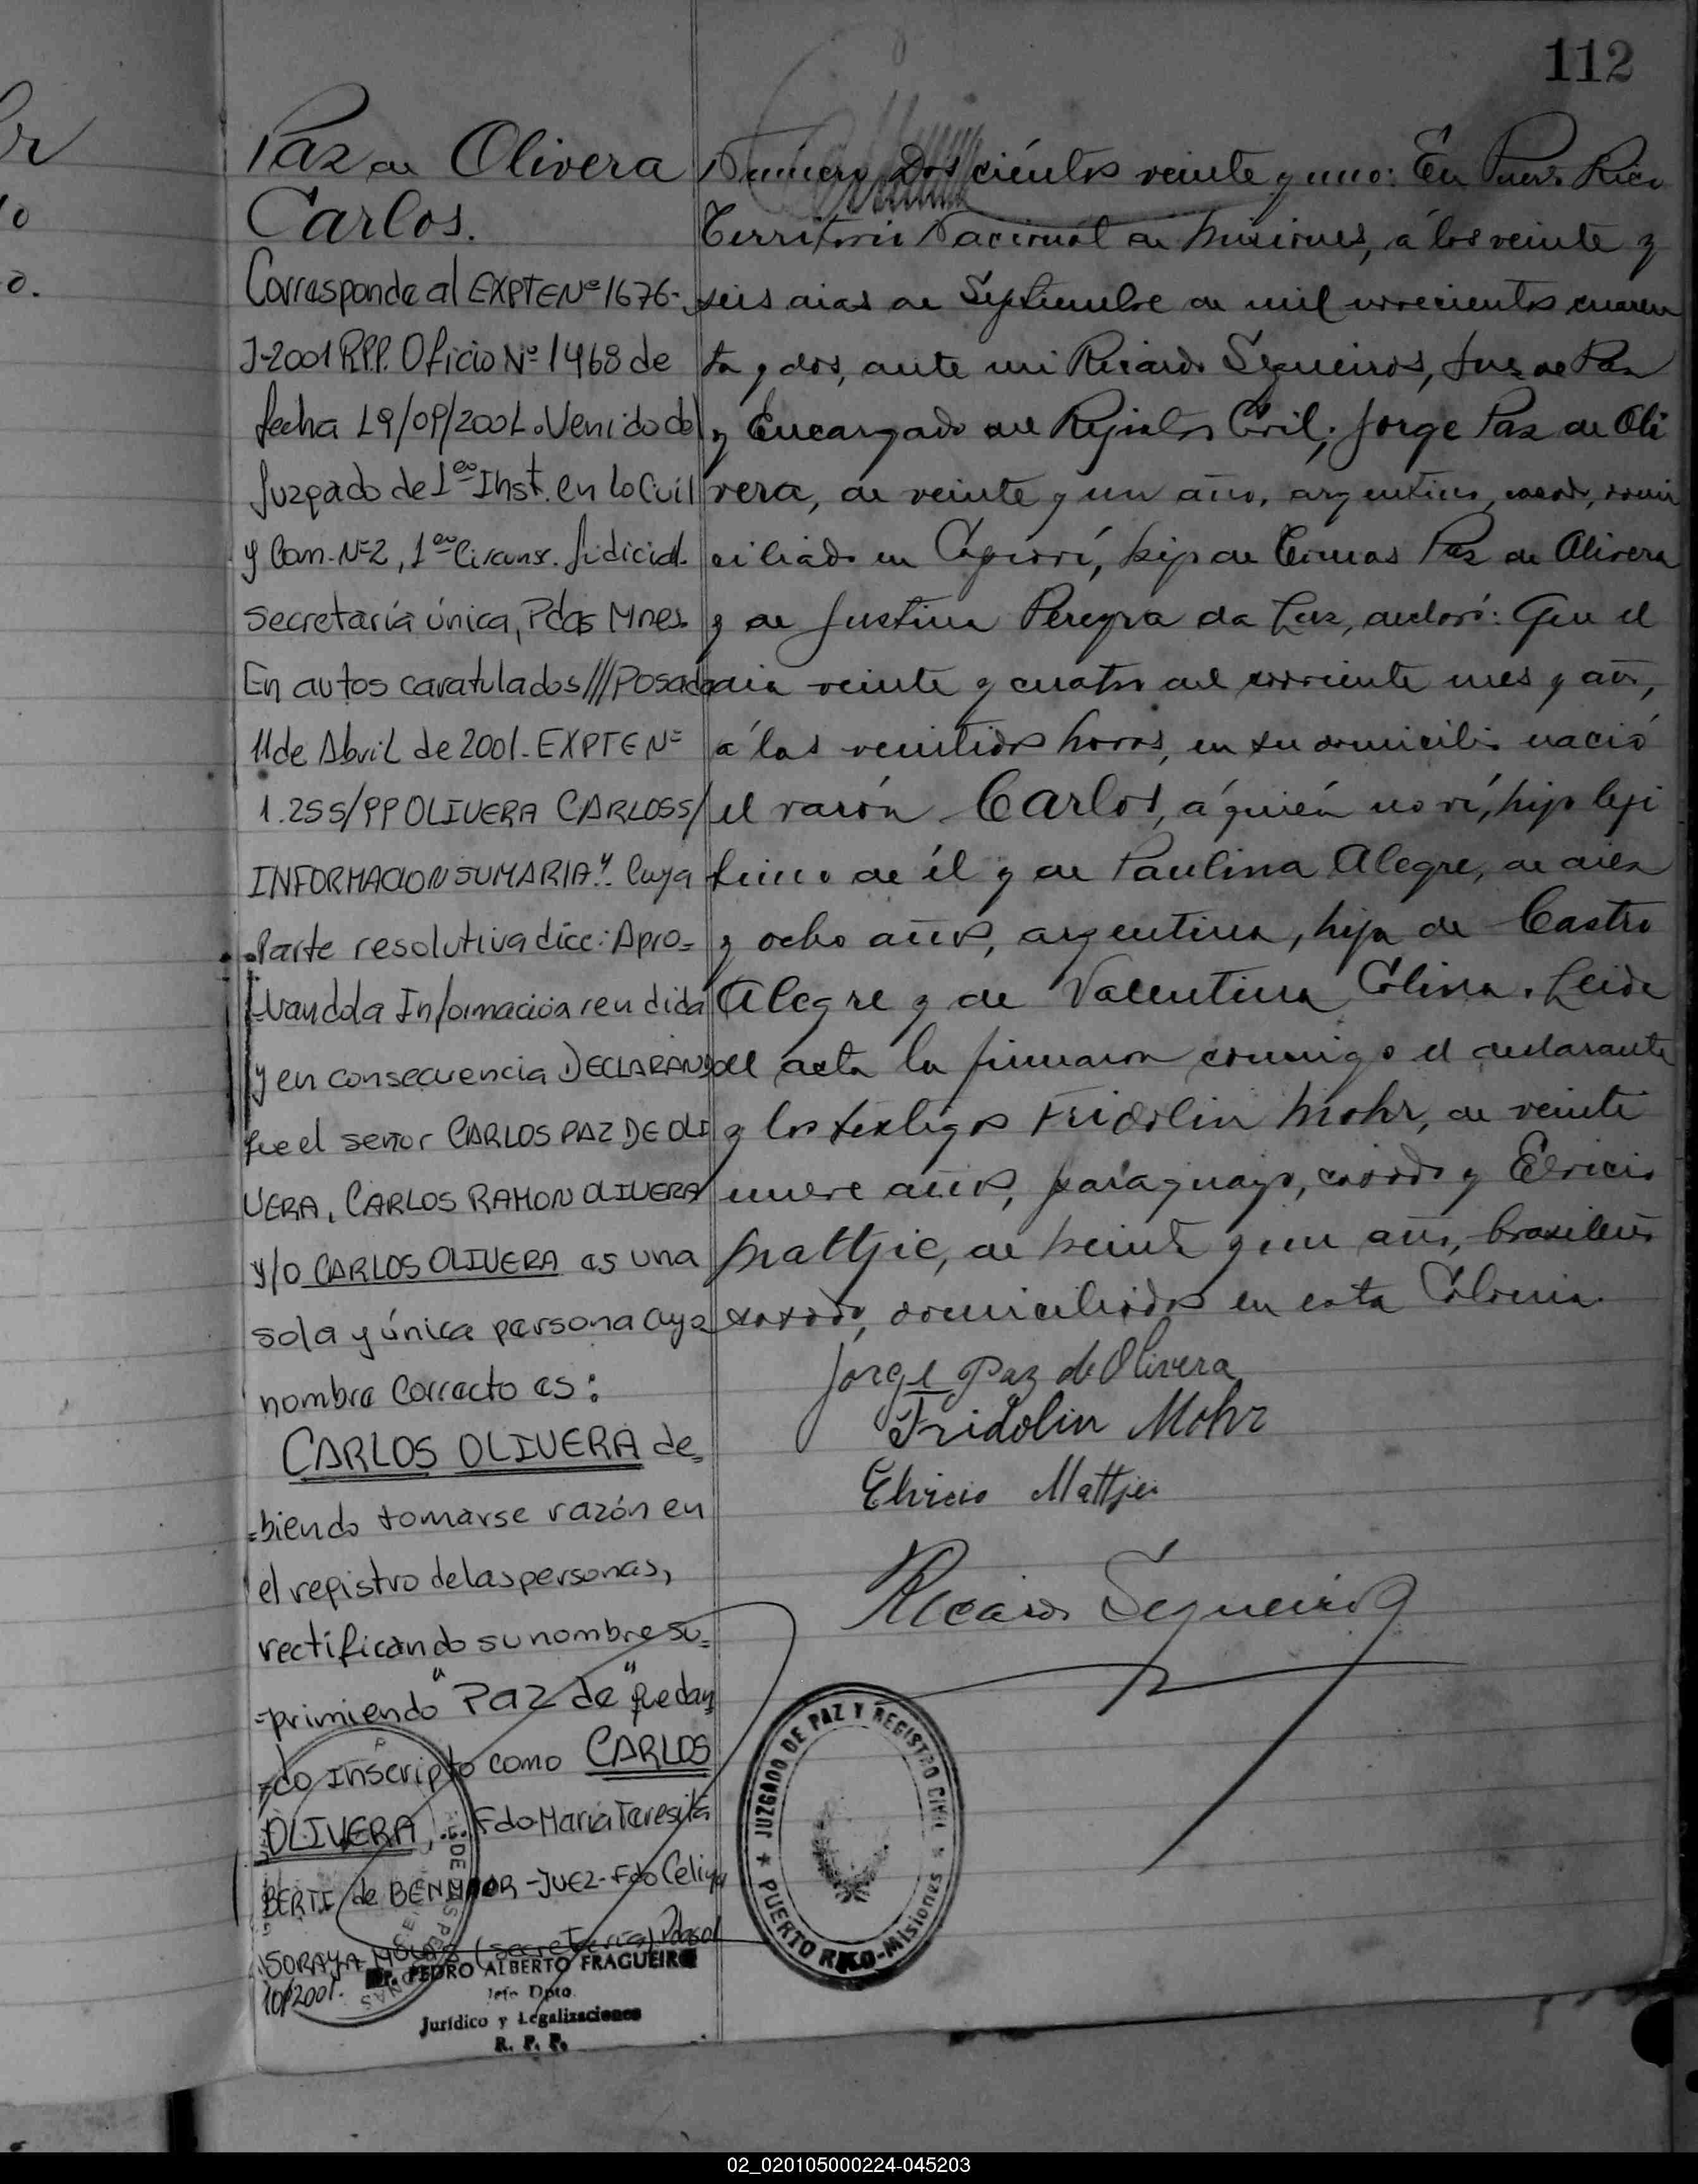 112
Paz de Olivera
Carlos.
Corresponde al EXPTE Nº 1676-
J-2001 R.P.P. Oficio Nº 1468 de
fecha 19/09/2001. Venido del
Juzgado de 1era Inst. en lo Civil
y Com. Nº 2, 1era Circunsc. Judicial.
Secretaría única, Pdas Mnes.
En autos caratulados ///Posadas
11 de Abril de 2001. EXPTE Nº
1.255/PP OLIVERA CARLOS S/
INFORMACION SUMARIA". Cuya
Parte resolutiva dice: Apro=
bando la Información rendida
y en consecuencia DECLARANDO
que el señor CARLOS PAZ DE OLI
VERA, CARLOS RAMON OLIVERA
y/o CARLOS OLIVERA es una
sola y única persona cuyo
nombre correcto es:
CARLOS OLIVERA de=
=biendo tomarse razón en
el registro de las personas,
rectificando su nombre su=
=primiendo "Paz de" quedan
=do inscripto como CARLOS
OLIVERA, Fdo Maria Teresita
BERTI de -JUEZ- Fdo Celina
SORAYA (secretaria) Pdas
10/2001.
PEDRO ALBERTO FRAGUEIRO
Jefe Dpto.
Jurídico y Legalizaciones
R. P. P.
Número Doscientos veinte y uno: En Puerto Rico
Territorio Nacional de Misiones, á los veinte y
seis dias de Septiembre de mil novecientos cuaren
ta y dos, ante mi Ricardo Sequeiros, Juez de Paz
y Encargado del Rejistro Civil; Jorge Paz de Oli
vera, de veinte y un año, argentino, casado, domi
ciliado en Capioví, hijo de Paz de Olivera
y de Justina Pereyra da Luz, declaró: Que el
dia veinte y cuatro del corriente mes y año,
á las veintidos horas, en su domicilio nació
el varón Carlos, á quién no ví, hijo leji
timo de él y de Paulina Alegre, de diez
y ocho años, argentina, hija de Castro
Alegre y de Valentina Colina. Leida
el acta la firmaron conmigo el declarante
y los testigos Fridolin Mohr, de veinte
nueve años, paraguayo, casado y Elvicio
Mattjie, de veinte y un año, brasileño
casado, domiciliados en esta Colonia.
Jorge Paz de Olivera
Fridolin Mohr
Elvicio Mattjie
Ricardo Sequeiros
JUZGADO DE PAZ Y REGISTRO CIVIL
PUERTO RICO-Misiones
02_020105000224-045203